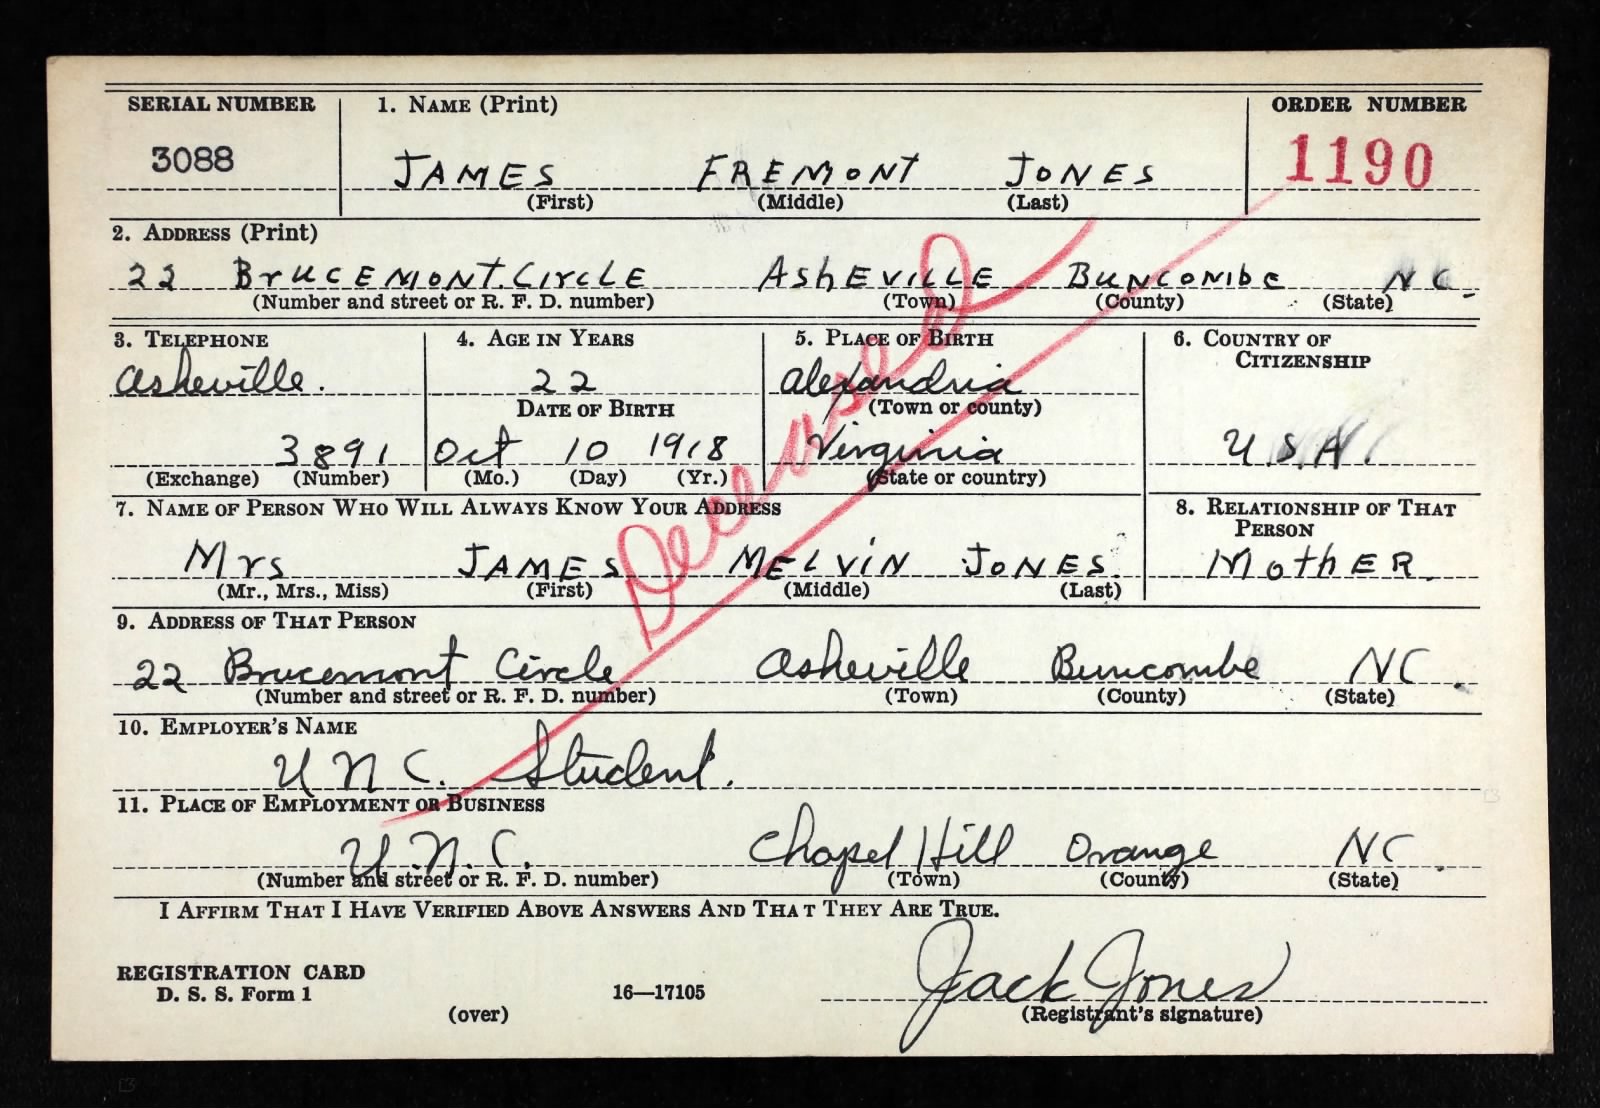 SERIAL NUMBER 1. NAME (Print) ORDER NUMBER
3088 JAMES FREMONT JONES 1190
(First) (Middle) (Last)
2. ADDRESS (Print)
22 BrUCEMONT. CIrCLE AshEVILLE BUNCOMbE NC.
(Number and street or R. F. D. number) (Town) (County) (State)
3. TELEPHONE 4. AGE IN YEARS 5. PLACE OF BIRTH 6. COUNTRY OF CITIZENSHIP
Asheville. 22 Alexandria
DATE OF BIRTH (Town or county)
3891 Oct 10 1918 Virginia U.S.A.
(Exchange) (Number) (Mo.) (Day) (Yr.) (State or country)
Deceased
7. NAME OF PERSON WHO WILL ALWAYS KNOW YOUR ADDRESS 8. RELATIONSHIP OF THAT PERSON
Mrs JAMES MELVIN JONES. MothER.
(Mr., Mrs., Miss) (First) (Middle) (Last)
9. ADDRESS OF THAT PERSON
22 Brucemont Circle Asheville Buncombe NC.
(Number and street or R. F. D. number) (Town) (County) (State)
10. EMPLOYER'S NAME
U N C. Student.
11. PLACE OF EMPLOYMENT OR BUSINESS
U.N.C. Chapel Hill Orange NC.
(Number and street or R. F. D. number) (Town) (County) (State)
I AFFIRM THAT I HAVE VERIFIED ABOVE ANSWERS AND THAT THEY ARE TRUE.
REGISTRATION CARD
D. S. S. Form 1 16—17105 Jack Jones
(over) (Registrant's signature)